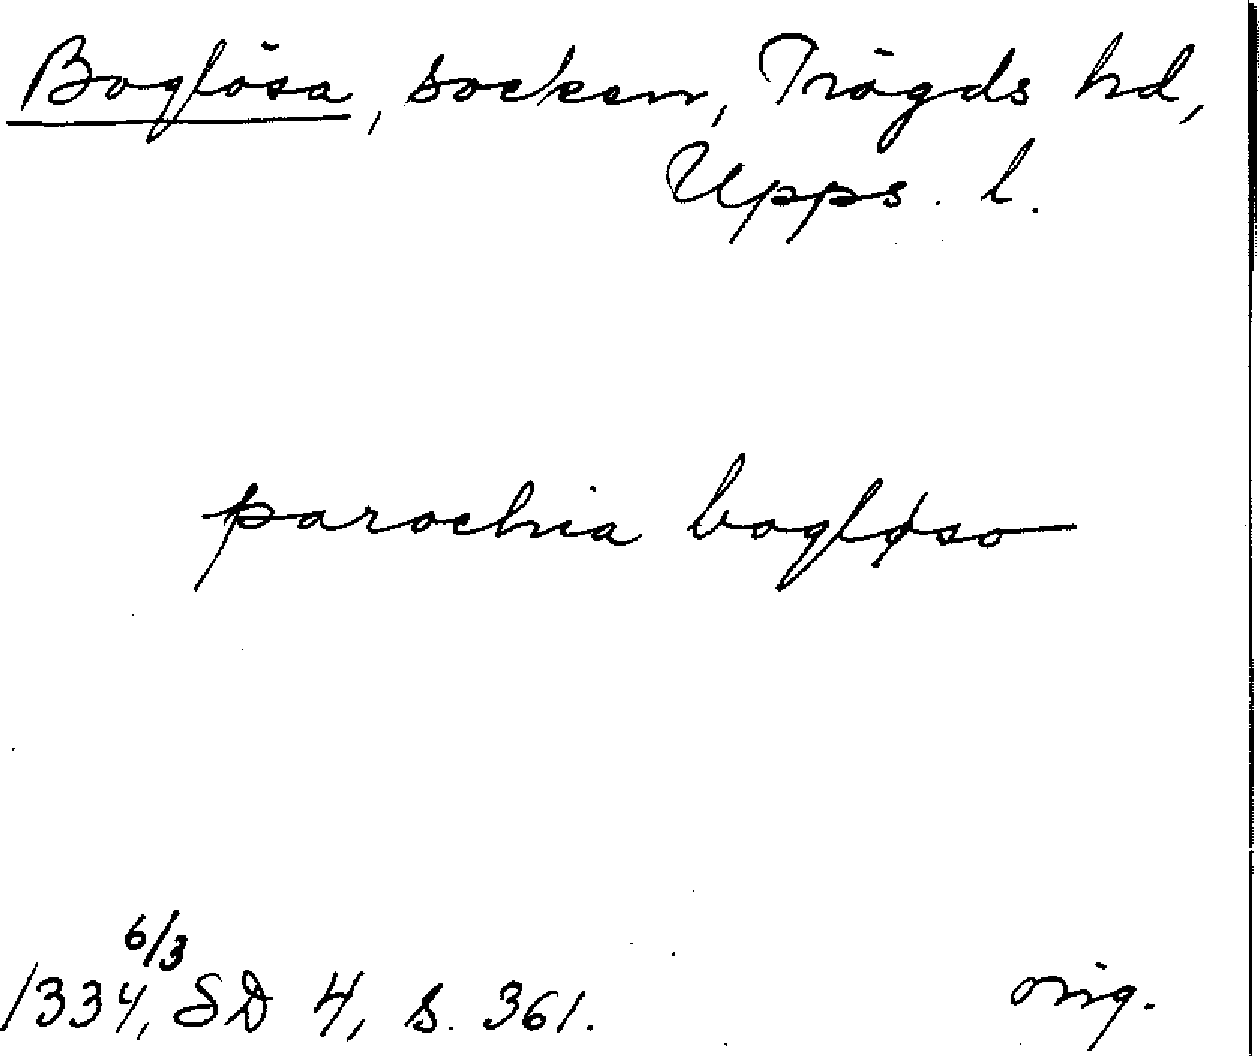 Boglösa, socken, Trögds hd,
Upps. l.
parochia bogløso
6/3
1334, SD 4, s. 361. orig.